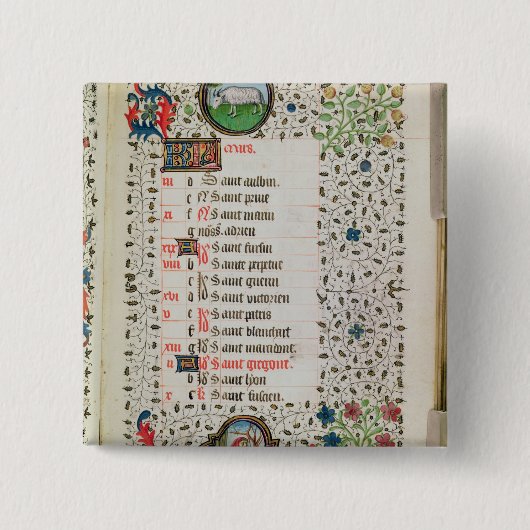 KL Mars.
iii d Saint aulbin.
e Saint prive
xi f Saint marin
g nos S. adrien
xix A Saint fursin
viii b Sainte perpetue
c Saint guerin
xvi d Saint victorien
v e Saint pitris
f Saint blanchart
xiii g Saint mariدont
ii A Saint gregoire.
b Saint lyon
x c Saint fuscien.